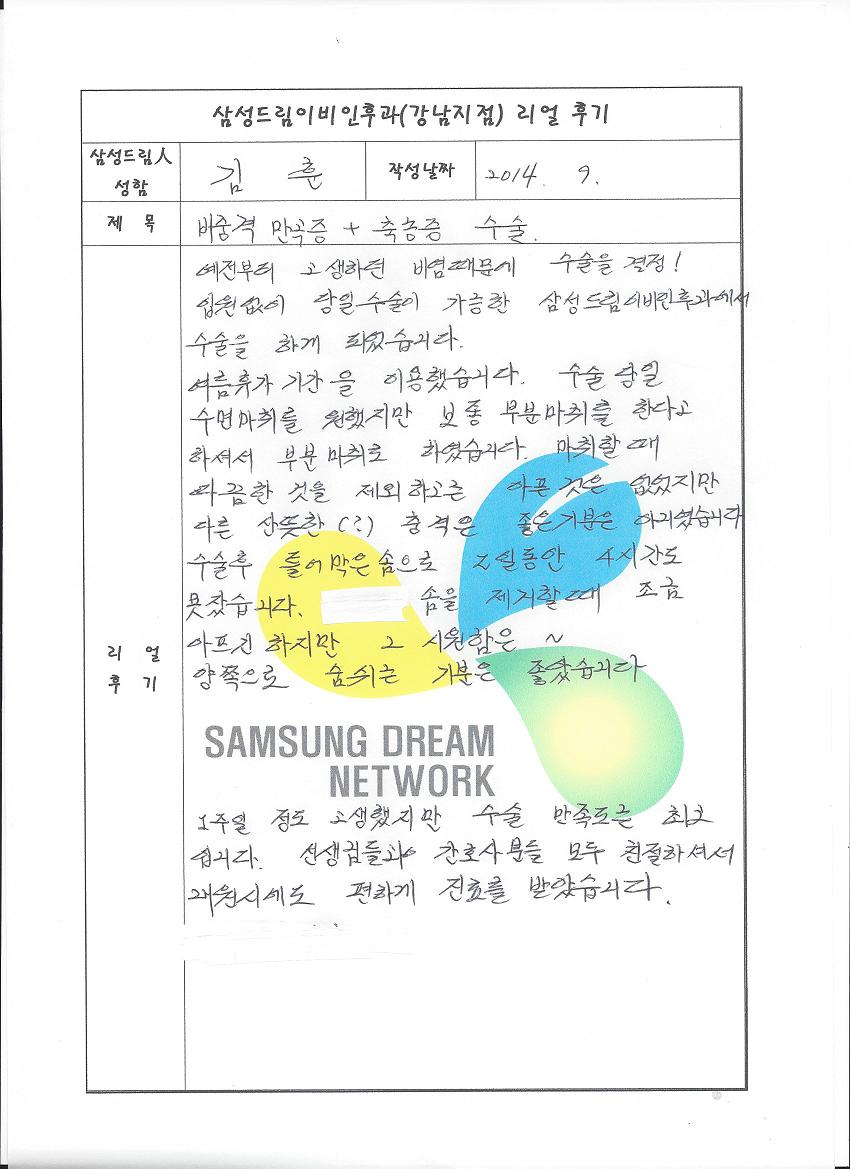 삼성드림이비인후과(강남지점) 리얼 후기
삼성드림人 성함
김 훈
작성날짜
2014. 9.
제 목
비중격 만곡증 + 축농증 수술.
리 얼 후 기
예전부터 고생하던 비염때문에 수술을 결정!
입원없이 당일수술이 가능한 삼성드림이비인후과에서
수술을 하게 되었습니다.
여름휴가 기간을 이용했습니다. 수술 당일
수면마취를 원했지만 보통 부분마취를 한다고
하셔서 부분마취로 하였습니다. 마취할때
따끔한 것을 제외하고는 아픈 것은 없었지만
다른 산뜻한(?) 충격은 좋은기분은 아니였습니다
수술후 틀어막은 솜으로 2일동안 4시간도
못잤습니다. 솜을 제거할때 조금
아프긴 하지만 그 시원함은 ~
양쪽으로 숨쉬는 기분은 좋았습니다
SAMSUNG DREAM
NETWORK
1주일 정도 고생했지만 수술 만족도는 최고
입니다. 선생님들과 간호사분들 모두 친절하셔서
내원시에도 편하게 진료를 받았습니다.